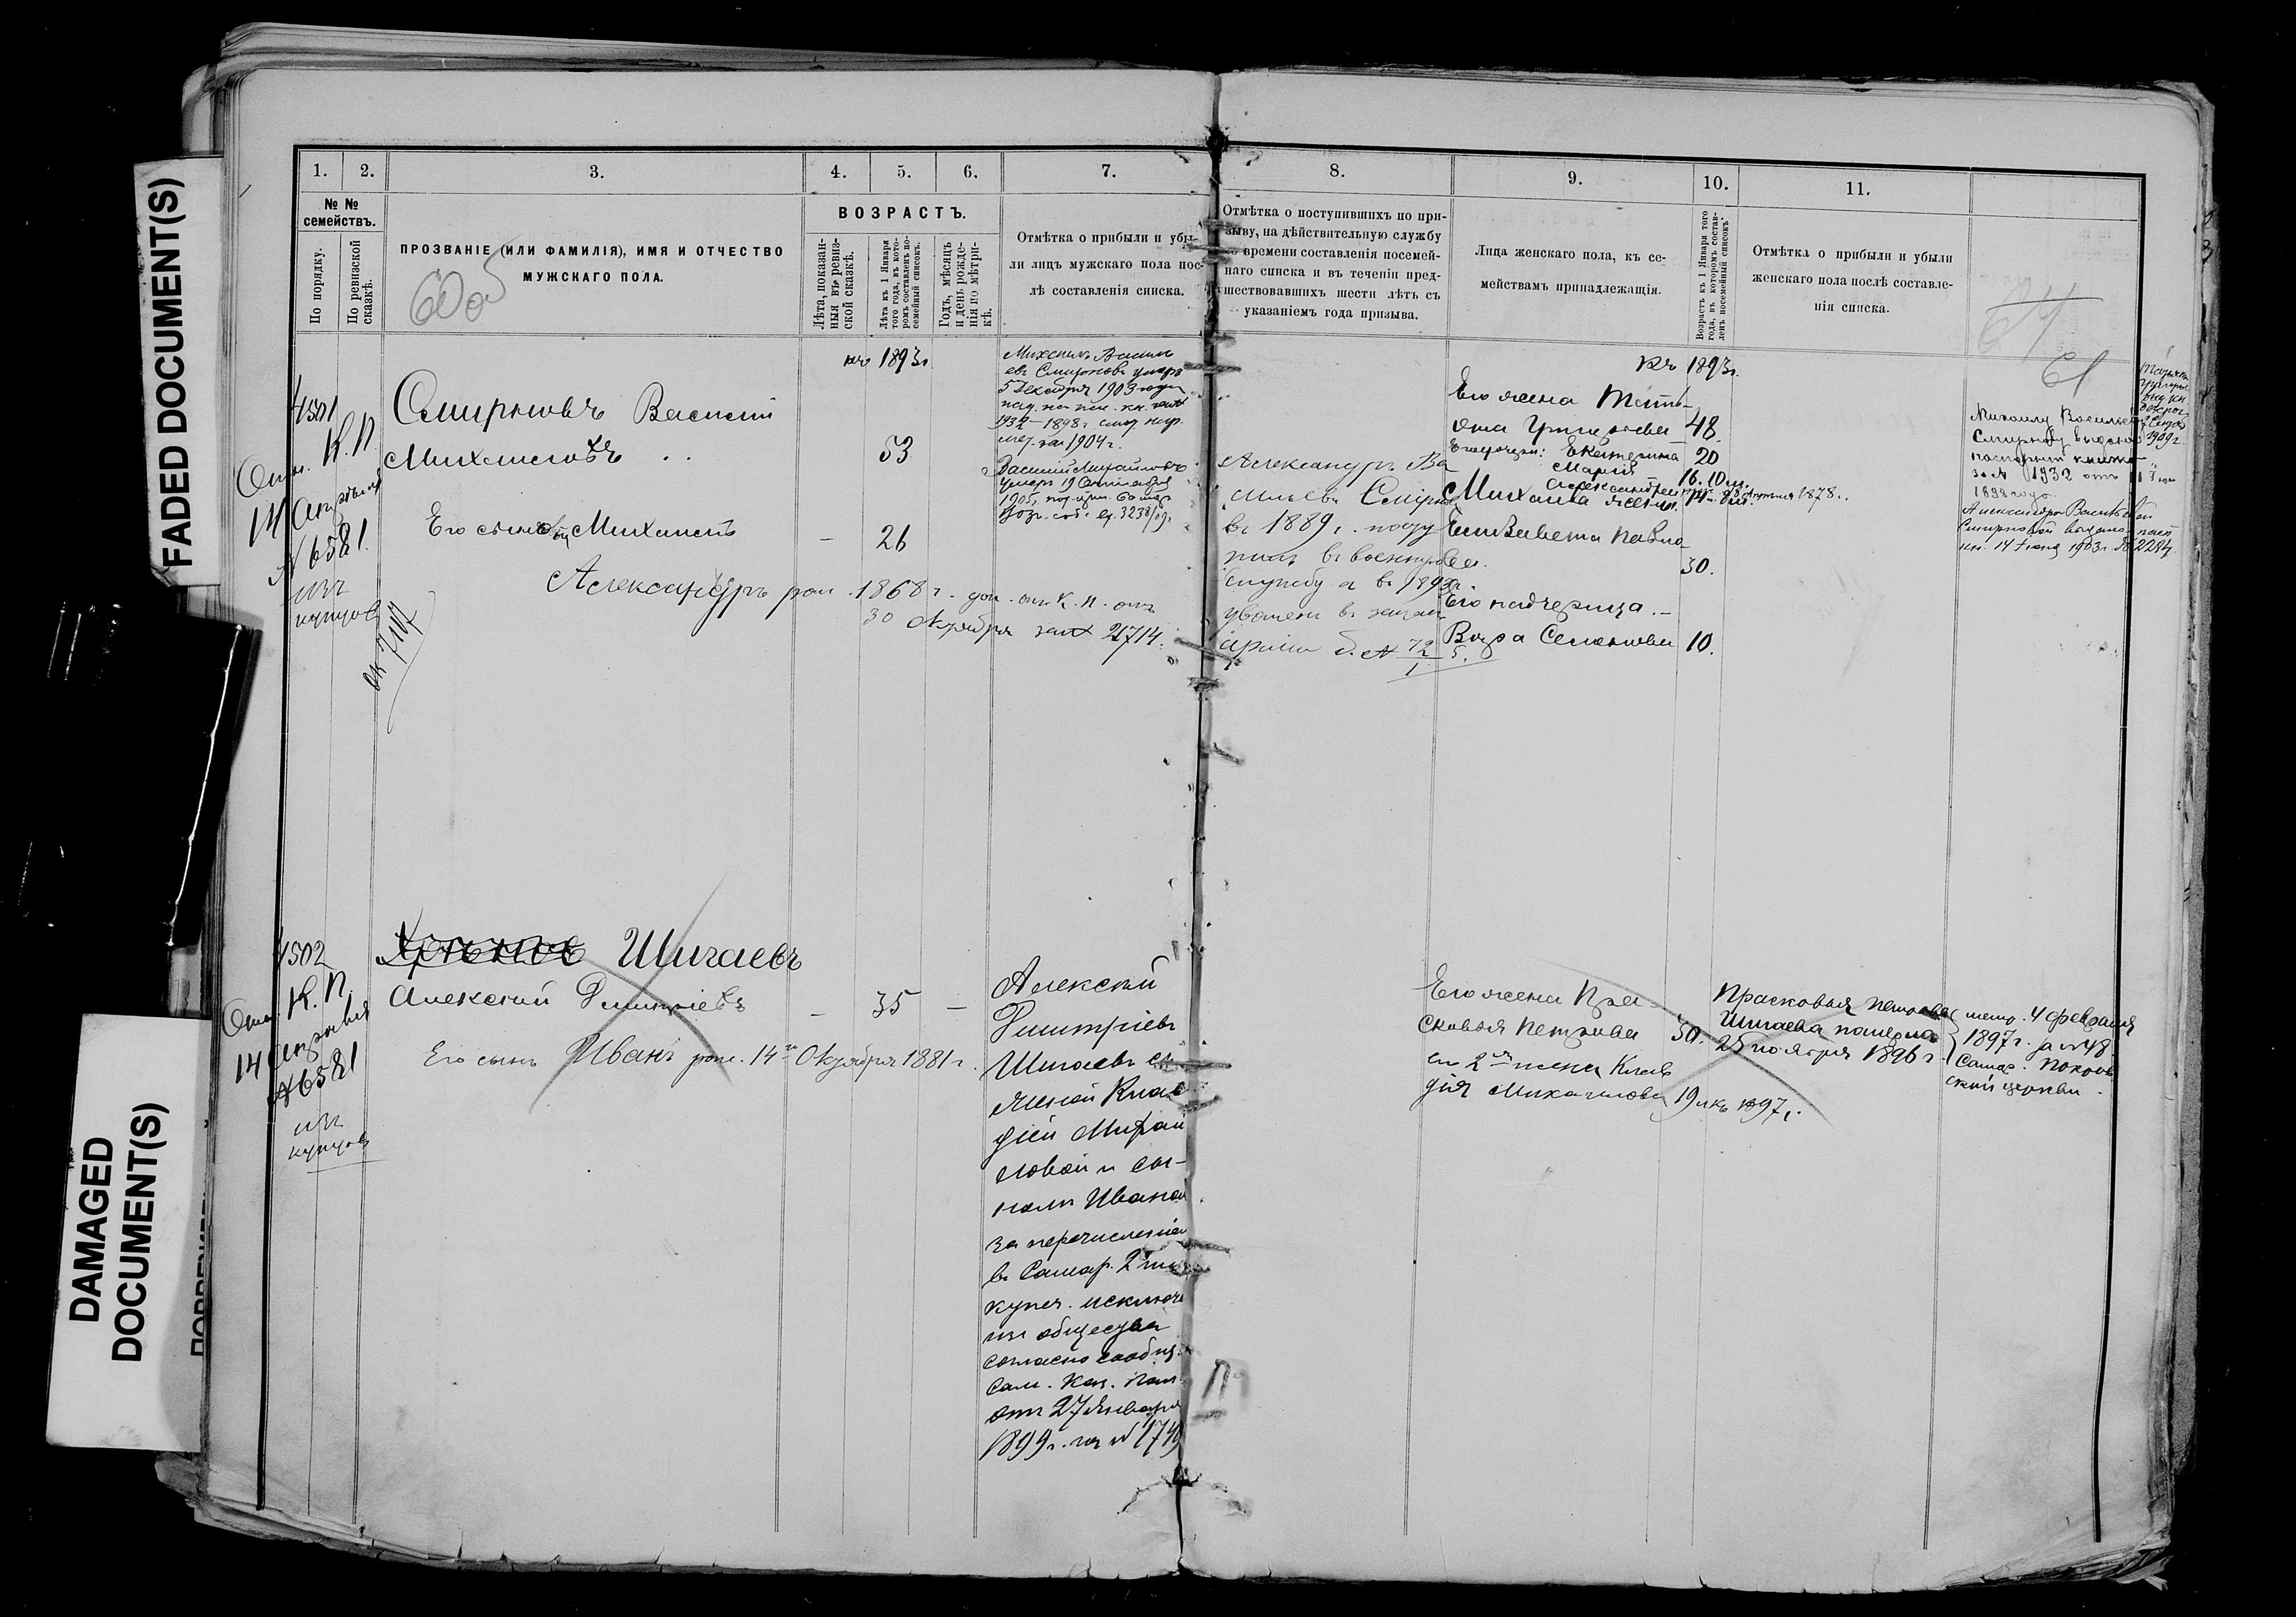 FADED DOCUMENT(S)
DAMAGED
DOCUMENT(S)
1.
2.
3.
4.
5.
6.
7.
8.
9.
10.
11.
№ №
семействъ.
По порядку.
По ревизской
сказкѣ.
ПРОЗВАНІЕ (ИЛИ ФАМИЛІЯ), ИМЯ И ОТЧЕСТВО
МУЖСКАГО ПОЛА.
60 об
ВОЗРАСТЪ.
Лѣта, показан-
ныя въ ревиз-
ской сказкѣ.
Лѣта къ 1 Января
того года, въ кото-
ромъ составленъ по-
семейный списокъ.
Годъ, мѣсяцъ
и день рожде-
нія по метри-
кѣ.
Отмѣтка о прибыли и убы-
ли лицъ мужскаго пола пос-
лѣ составленія списка.
Отмѣтка о поступившихъ по при-
зыву, на дѣйствительную службу
времени составленія посемей-
наго списка и въ теченіи пред-
шествовавшихъ шести лѣтъ съ
указаніемъ года призыва.
Лица женскаго пола, къ се-
мействамъ принадлежащія.
Возрастъ къ 1 Января того
года, въ которомъ состав-
ленъ посемейный списокъ.
Отмѣтка о прибыли и убыли
женскаго пола послѣ составле-
нія списка.
64
61
4501
Отн. К. П.
14 Апрѣля
№ 6581
изъ
купцовъ
Смирновъ Василій
Михаиловъ
Его сыновья Михаилъ
Александръ рож. 1868 г. доп. отн. К. П. отъ
30 Ноября за № 21714.
къ 1893 г.
53
26
Михаилъ Василь
евъ Смирновъ умеръ
5 Декабря 1903 года
1932 – 1898 г.
1904 г.
Василій Михайловъ
умеръ 19 Сентября
1905
Александръ Ва
сильевъ Смирно
въ 1889 г. посту
пилъ въ военную
службу а въ 1893 г.
уволенъ въ запас
арміи б. №
къ 1893 г.
Его жена Тать-
яна Григорьева 48.
Его дочери: Екатерина 20
Марія 16. 10 м.
Александра
1878 г.
Михаила жена
Елизавета Павло-
ва. 30.
Его падчерица
Вѣра Семенова 10.
Михаилу Васильеву
Смирнову выдана
паспортн книжка
за № 1932 отъ
1898 года.
Александрѣ Васильевой
Смирновой выдана пасп
кн. 14 Іюня 1903 г. № 2284
1909 г.
4502
Отн. К. П.
14 Апрѣля
№ 6581
изъ
купцовъ
Шигаевъ
Алексѣй Дмитріевъ – 35 –
Его сынъ Иванъ рож. 14го Октября 1881 г.
Алексѣй
Дмитріевъ
Шигаевъ съ
женой Клав
діей Михай
ловой и сы-
номъ Иваномъ
за перечисленіем
въ Самар. 2 гил
купеч. исключ
изъ общества
согласно сообщ.
Сам. Каз. Пал.
отъ 27 Января
1899 г. за №
Его жена Пра
сковья Петрова 30.
его 2ая жена Клав
дія Михаилова 19 л къ 1897 г.
Прасковья Петрова
Шигаева померла
25 ноября 1896 г.
метр. 4 февраля
1897 г. за № 48
Самар. Покров
ской церкви.